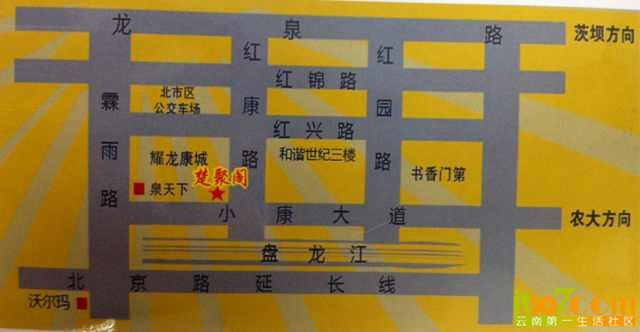 龙泉路
茨坝方向
红康路
红园路
红锦路
霖雨路
北市区
公交车场
红兴路
耀龙康城
和谐世纪三楼
楚聚阁
泉天下
书香门第
小康大道
农大方向
盘龙江
北京路延长线
沃尔玛
云南第一生活社区